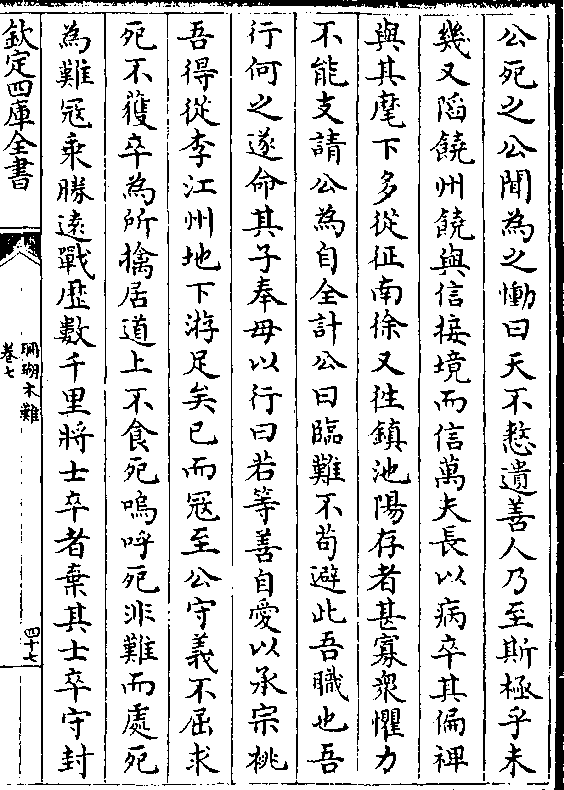 公死之公聞為之慟曰天不憗遺善人乃至斯極乎未
幾又䧟饒州饒與信接境而信萬夫長以病卒其偏裨
與其麾下多從征南徐又徃鎮池陽存者甚寡衆懼力
不能支請公為自全計公曰臨難不苟避此吾職也吾
行何之遂命其子奉母以行曰若等善自愛以承宗祧
吾得從李江州地下游足矣已而冦至公守義不屈求
死不獲卒為所擒居道上不食死嗚呼死非難而處死
為難冦乘勝逺戰歴數千里將士卒者棄其士卒守封
欽定四庫全書
珊瑚木難
卷七
四十七